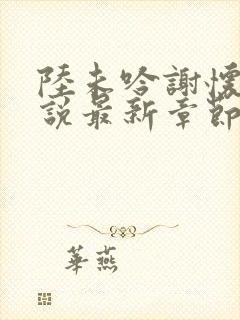 陸未吟謝懷
說最新章節
華燕